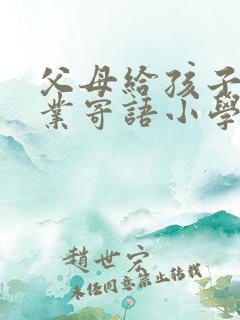 父母給孩子
業寄語小學
趙世宏
未经同意禁止转载